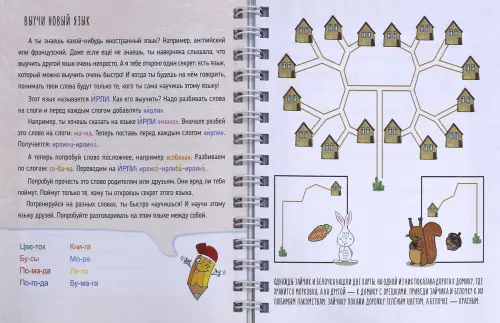 ВЫУЧИ НОВЫЙ ЯЗЫК
А ты знаешь какой-нибудь иностранный язык? Например, английский
или французский. Даже если ещё не знаешь, ты наверняка слышала, что
выучить другой язык очень непросто. А я тебе открою один секрет: есть язык,
который можно выучить очень быстро! И когда ты будешь на нём говорить,
понимать твои слова будут только те, кого ты сама научишь этому языку!
Этот язык называется ИРЛИ. Как его выучить? Надо разбивать слова
на слоги и перед каждым слогом добавлять «ирли».
Например, ты хочешь сказать на языке ИРЛИ «мама». Вначале разбей
это слово на слоги: ма-ма. Теперь поставь перед каждым слогом «ирли».
Получается: ирлима-ирлима.
А теперь попробуй слово посложнее, например «собака». Разбиваем
по слогам: со-ба-ка. Переводим на ИРЛИ: ирлисо-ирлиба-ирлика.
Попробуй прочесть это слово родителям или друзьям. Они вряд ли тебя
поймут. Поймут только те, кому ты откроешь секрет этого языка.
Потренируйся на разных словах, ты быстро научишься! И научи этому
языку друзей. Попробуйте разговаривать на этом языке между собой.
Цве-ток Кни-га
Бу-сы Мо-ре
По-ма-да Ле-то
По-го-да Бу-ма-га
ОДНАЖДЫ ЗАЙЧИК И БЕЛОЧКА НАШЛИ ДВЕ КАРТЫ. НА ОДНОЙ ИЗ НИХ ПОКАЗАНА ДОРОГА К ДОМИКУ, ГДЕ
ХРАНИТСЯ МОРКОВКА, А НА ДРУГОЙ — К ДОМИКУ С ОРЕШКАМИ. ПРИВЕДИ ЗАЙЧИКА И БЕЛОЧКУ К ИХ
ЛЮБИМЫМ ЛАКОМСТВАМ. ЗАЙЧИКУ ПОКАЖИ ДОРОЖКУ ЗЕЛЁНЫМ ЦВЕТОМ, А БЕЛОЧКЕ — КРАСНЫМ.